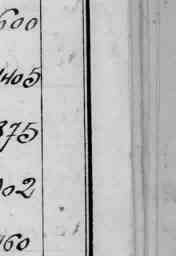 600
1405
375
902
160